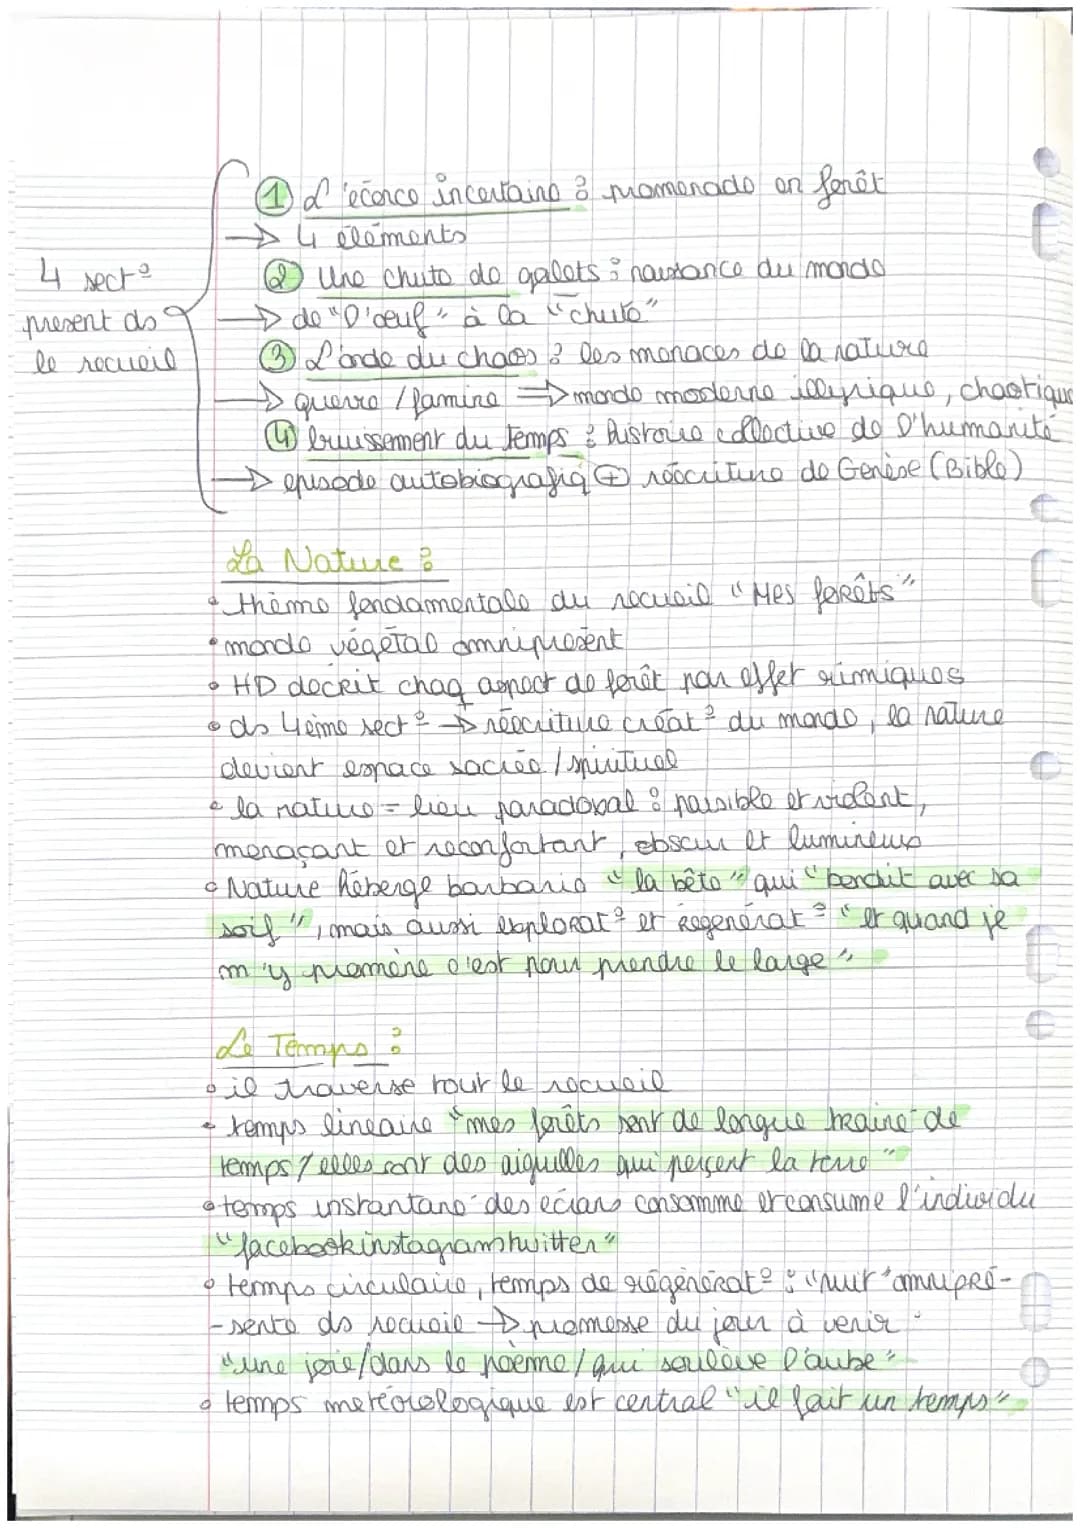 ① L'écorce incertaine : promenade en forêt
→ 4 éléments
4 sect°
② Une chute de galets : naissance du monde
présent ds
→ de "l'œuf" à la "chute"
le recueil
③ L'onde du chaos : les menaces de la nature
→ guerre / famine ⇒ monde moderne illyrique, chaotique
④ bruissement du temps : histoire collective de l'humanité
→ episode autobiografiq ⊕ réécriture de Genèse (Bible)
La Nature :
• thème fondamentale du recueil "Mes forêts"
• monde végétal omniprésent
• HD décrit chaq aspect de forêt par effet rimiques
• ds 4eime sect° → réécriture créat° du monde, la nature
devient espace sacrée / spirituel
• la nature = lieu paradoxal : paisible et violent,
menaçant et reconfortant, obscur et lumineux
• Nature héberge barbarie "la bête" qui "bondit avec sa
soif", mais aussi explorat° et régénérat° "et quand je
m'y promène c'est pour prendre le large"
Le Temps :
• il traverse tout le recueil
• temps linéaire "mes forêts sont de longue traine de
temps / elles sont des aiguilles qui persent la terre"
• temps instantané des écrans consomme et consume l'individu
"facebookinstagramtwitter"
• temps circulaire, temps de régénérat° : "nuit" omnipré-
-sente ds recueil → promesse du jour à venir
"une joie/dans le poème/qui soulève l'aube"
• temps météorologique est central "il fait un temps"